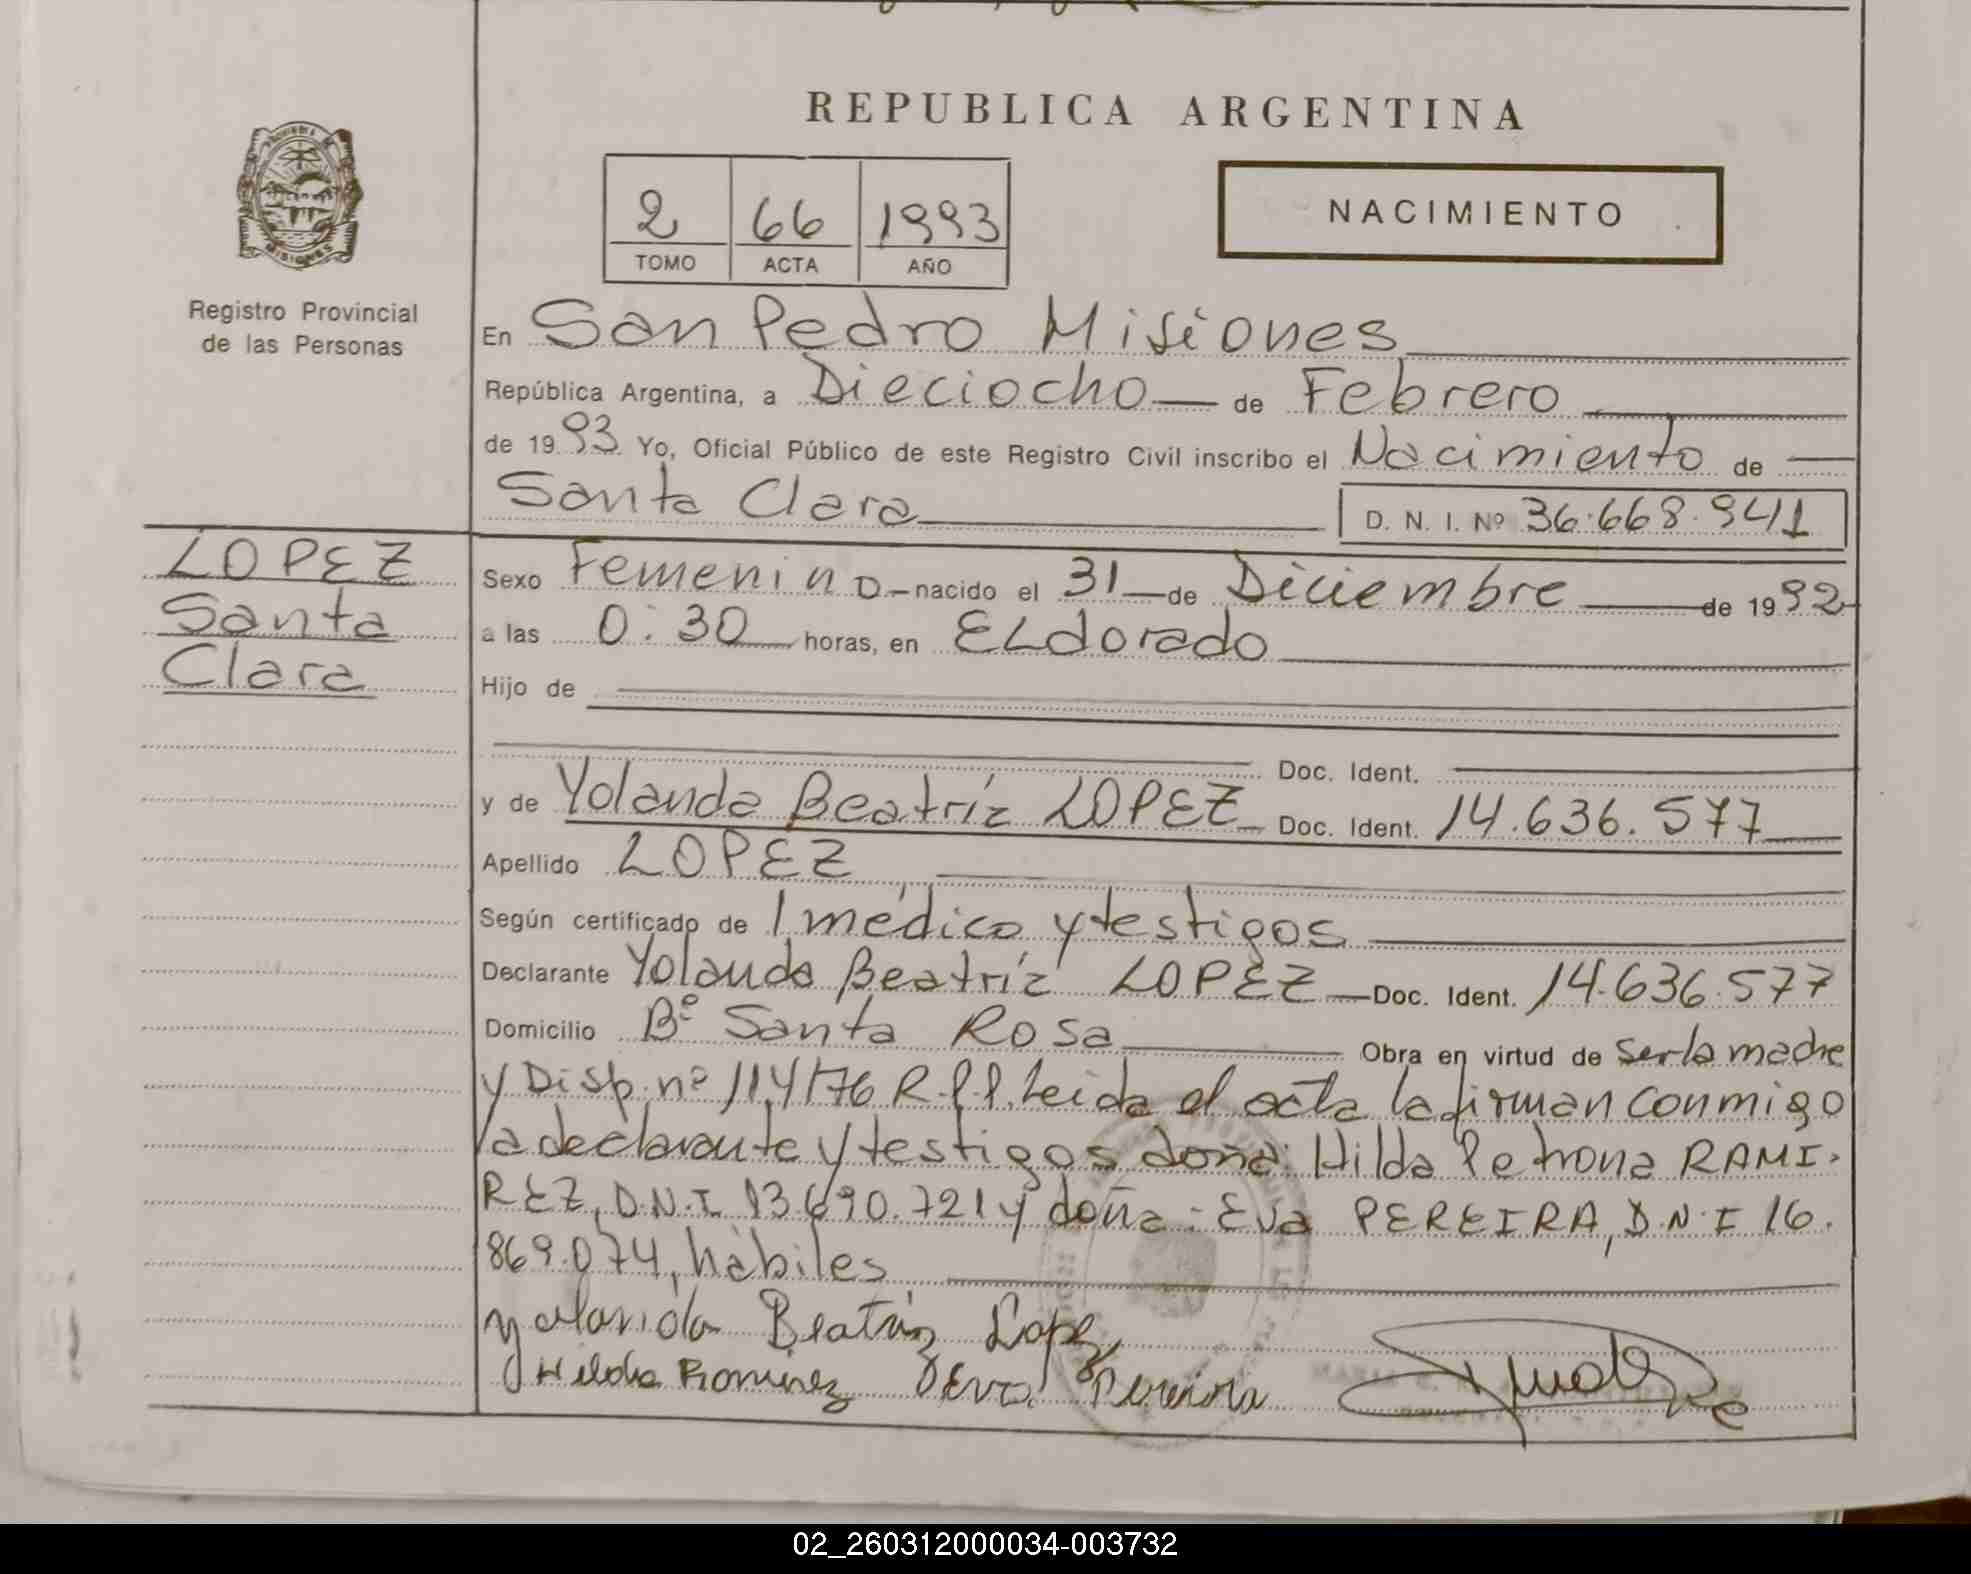 REPUBLICA ARGENTINA
2 66 1993
TOMO ACTA AÑO
NACIMIENTO
PROVINCIA DE
MISIONES
Registro Provincial
de las Personas
En San Pedro Misiones
República Argentina, a Dieciocho de Febrero
de 1993 Yo, Oficial Público de este Registro Civil inscribo el Nacimiento de
Santa Clara D. N. I. Nº 36.668.941
LOPEZ
Santa
Clara
Sexo Femenino nacido el 31 de Diciembre de 1992
a las 0:30 horas, en ELdorado
Hijo de
Doc. Ident.
y de Yolanda Beatríz LOPEZ Doc. Ident. 14.636.577
Apellido LOPEZ
Según certificado de 1 médico y testigos
Declarante Yolanda Beatríz LOPEZ Doc. Ident. 14.636.577
Domicilio Bº Santa Rosa Obra en virtud de ser la madre
y Disp. nº 114/76 R.P.P. Leida el acta la firman conmigo
la declarante y testigos doña: Hilda Petrona RAMI-
REZ, D.N.I 13.690.721 y doña: Eva PEREIRA, D.N.I 16.
869.074, hábiles
Yolanda Beatriz Lopez
Hilda Ramirez Eva Pereira
02_260312000034-003732